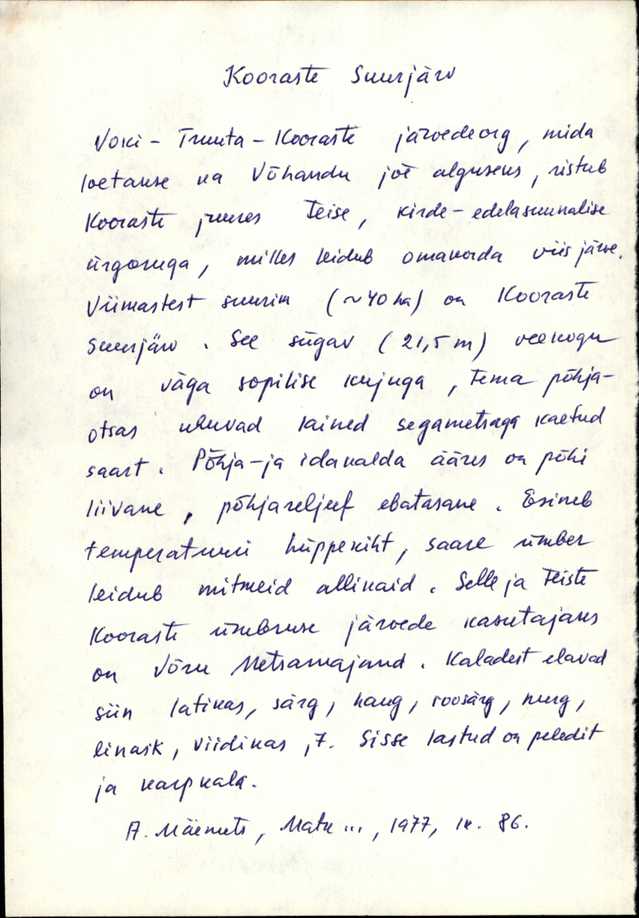 Kooraste Suurjärv
Voki - Truuta - Kooraste järvedeorg, mida
loetakse ka Võhandu jõe alguseks, ristub
Kooraste juures teise, kirde-edelasuunalise
ürgoruga, milles leidub omakorda viis järve.
Viimastest suurim (~40 ha) on Kooraste
Suurjärv. See sügav (21,5 m) veekogu
on väga sopilise kujuga, tema põhja-
otsas uhuvad lained segametsaga kaetud
saart. Põhja- ja idakalda ääres on põhi
liivane, põhjareljeef ebatasane. Esineb
temperatuuri hüppekiht, saare ümber
leidub mitmeid allikaid. Selle ja teiste
Kooraste ümbruse järvede kasutajaks
on Võru Metsamajand. Kaladest elavad
siin latikas, särg, haug, roosärg, nurg,
linask, viidikas, 7. Sisse lastud on peledit
ja karpkala.
A. Mäemets, Matk ..., 1977, lk. 86.